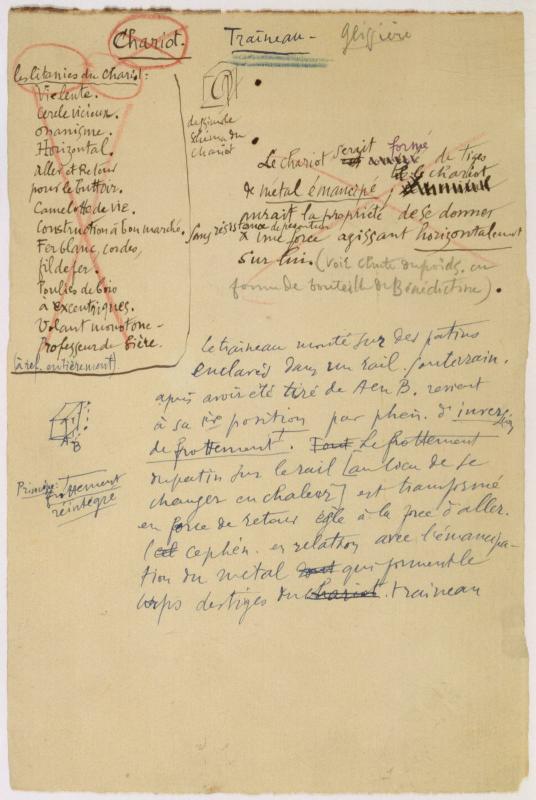 Chariot. Traîneau – Glissière
les Litanies du Chariot :
Vie lente.
Cercle vicieux.
Onanisme.
Horizontal.
Aller et Retour
pour le buttoir.
Camelotte de vie.
Construction à bon marché.
Fer blanc, cordes,
fil de fer.
Poulies de bois
à excentriques.
Volant monotone –
Professeur de Bière.
(à ref. entièrement)
dessin de
Schéma du
Chariot
Le chariot serait formé de tiges
de métal émancipé, le chariot
aurait la propriété de se donner
sans résistance de pesanteur
à une force agissant horizontalement
sur lui. (Voir chute du poids. en
forme de bouteille de Bénédictine).
Le traîneau monté sur des patins
enclavés dans un rail souterrain.
après avoir été tiré de A en B. revient
à sa 1ère position par phén. d'inversion
de frottement. Tout Le frottement
du patin sur le rail [au lieu de se
changer en chaleur] est transformé
en force de retour égle à la force d'aller.
(cet ce phén. en relation avec l'émancipa-
tion du métal qui forment le
corps des tiges du chariot. traîneau
A B
Principe :
frottement
réintégré